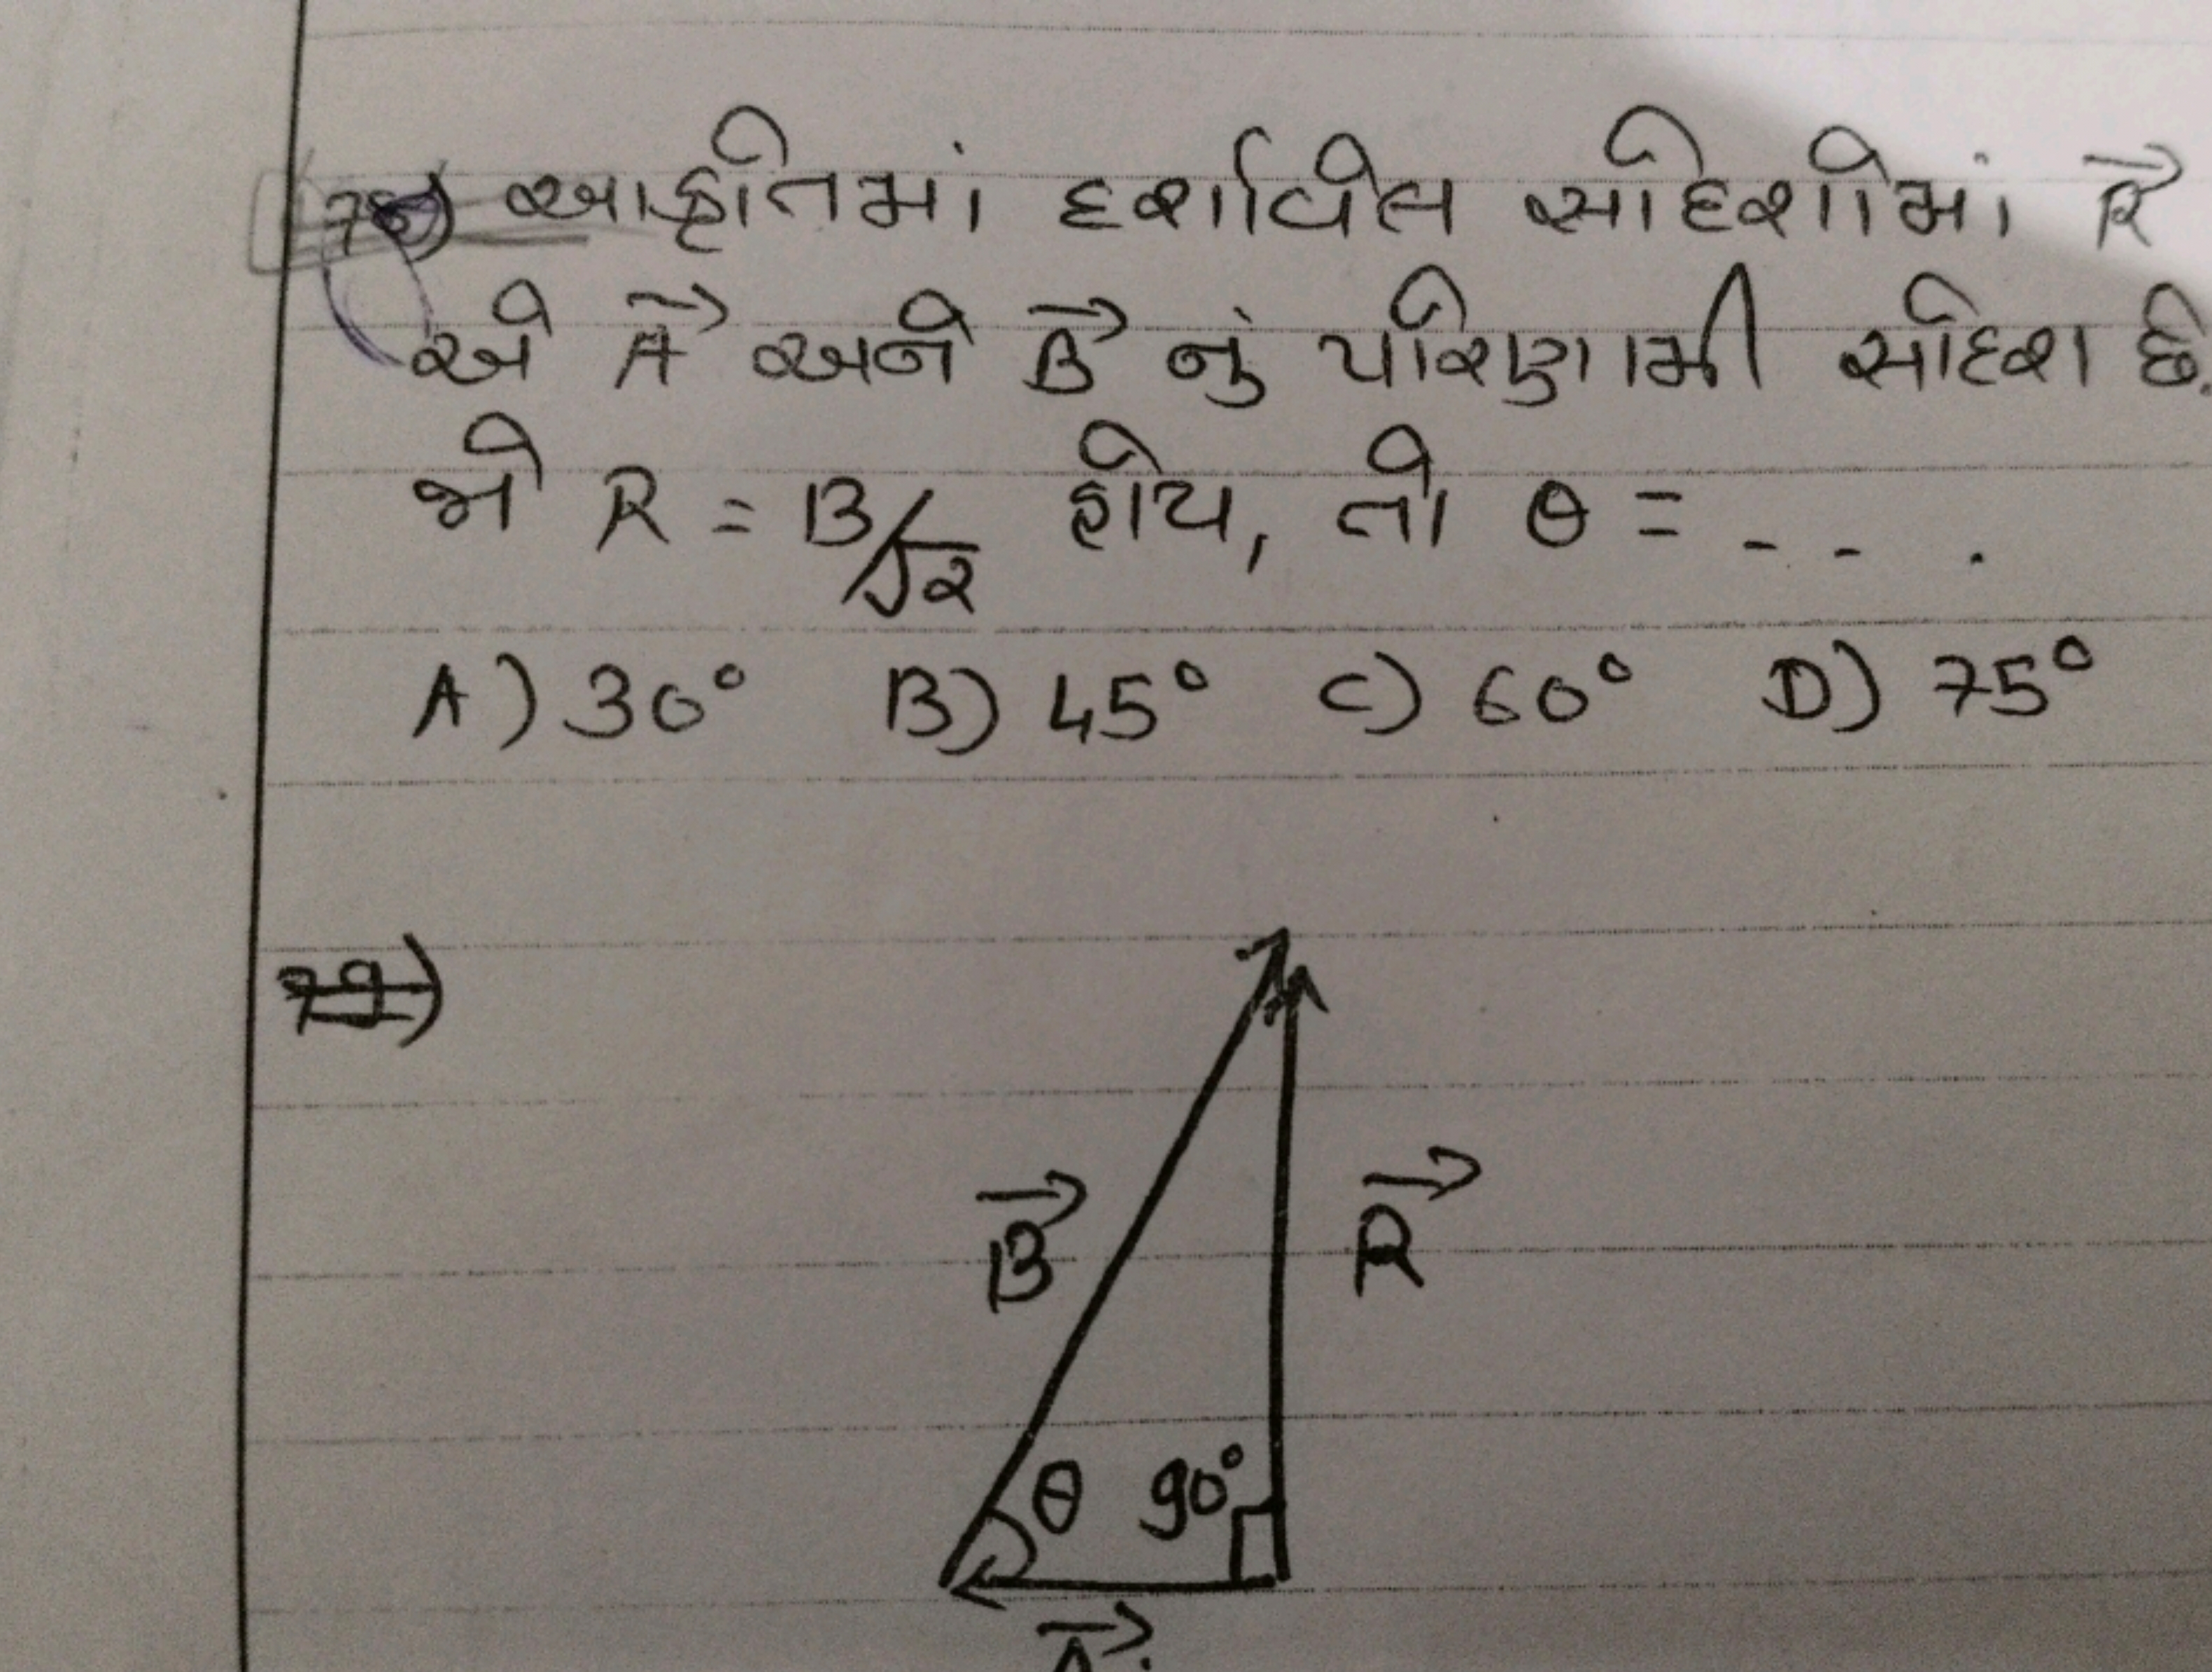 78) આકૃતિમાં દર્શાવેલ સદિશોમાં R⃗
એ A⃗ અને B⃗ નું પરિણામી સદિશ છે.
જો R = B/√2 હોય, તો θ = - - .
A) 30° B) 45° C) 60° D) 75°
79)
B⃗
R⃗
θ 90°
A⃗